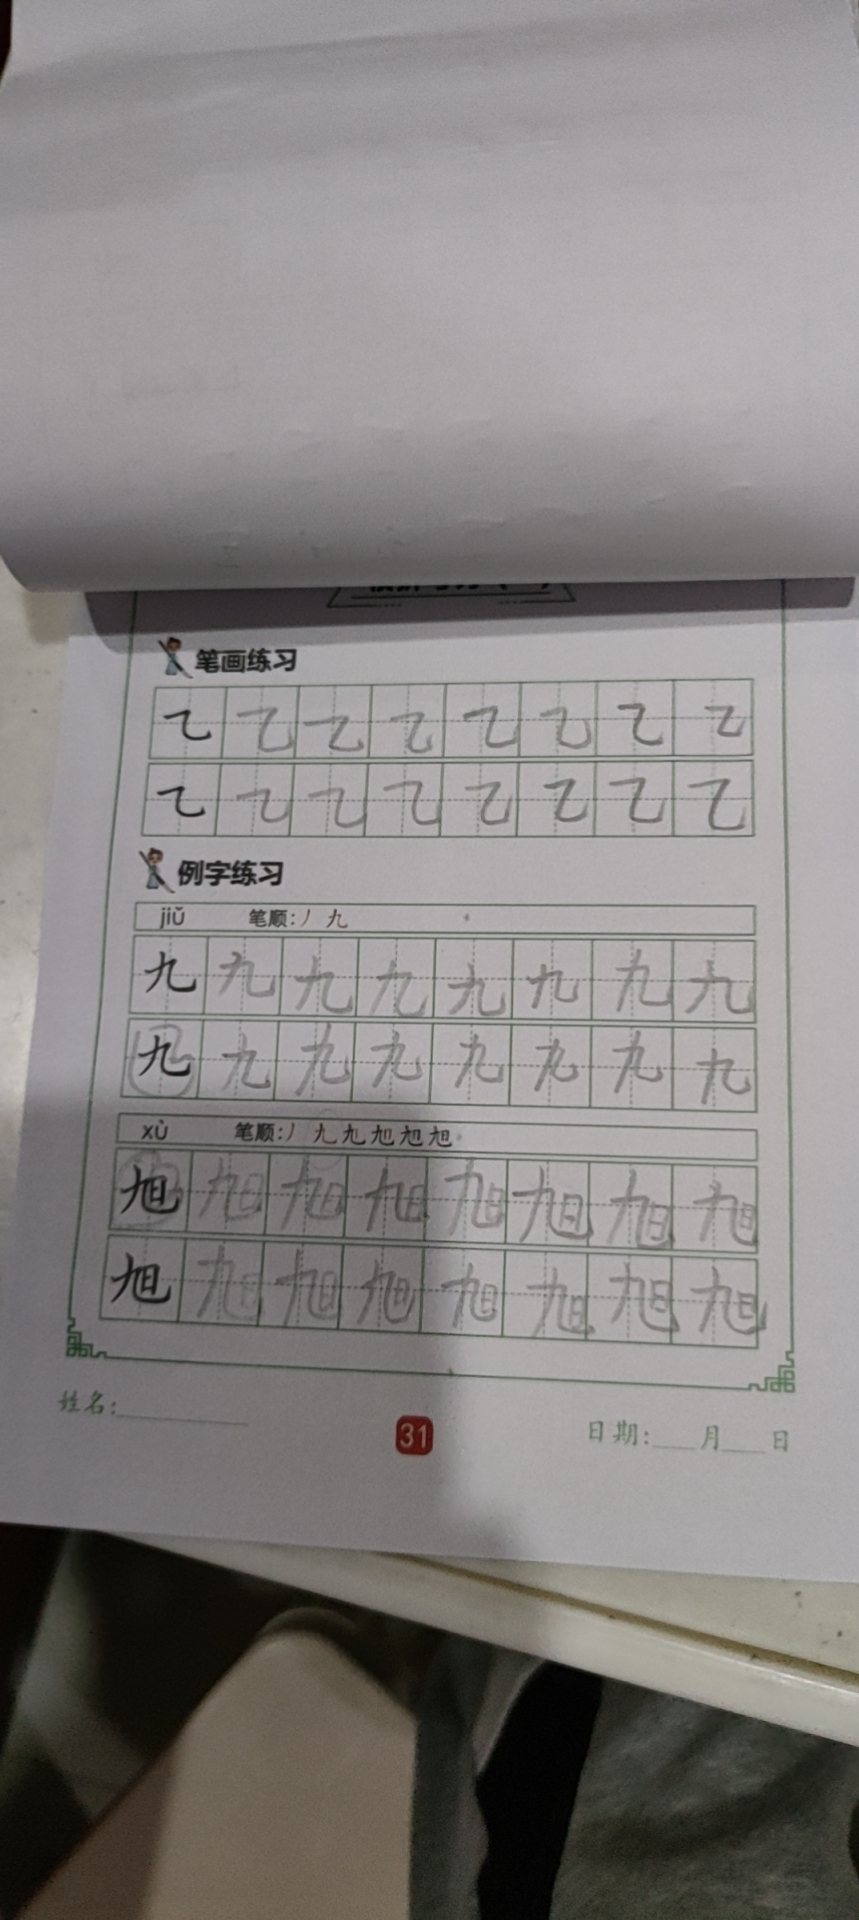 笔画练习
乙乙乙乙乙乙乙乙
乙乙乙乙乙乙乙乙
例字练习
jiǔ 笔顺:丿九
九九九九九九九九
九九九九九九九九
xù 笔顺:丿九九旭旭旭
旭旭旭旭旭旭旭旭
旭旭旭旭旭旭旭旭
姓名:
31
日期: 月 日